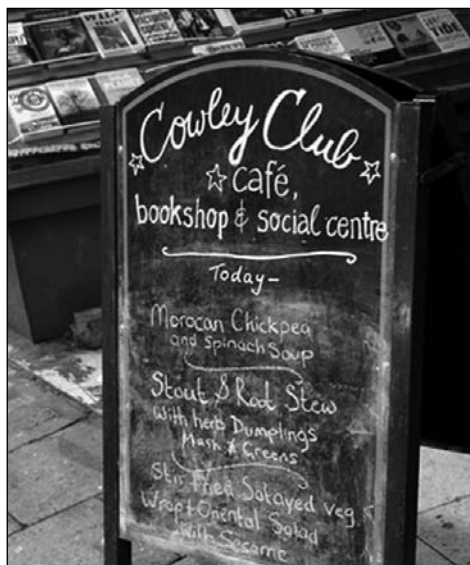 TIDE
Cowley Club
café,
bookshop & social centre
Today-
Morocan Chickpea
and Spinach Soup
Stout & Root Stew
With herb Dumplings
Mash & Greens
Stir Fried Satayed veg
Wrap + Oriental Salad
with Sesame